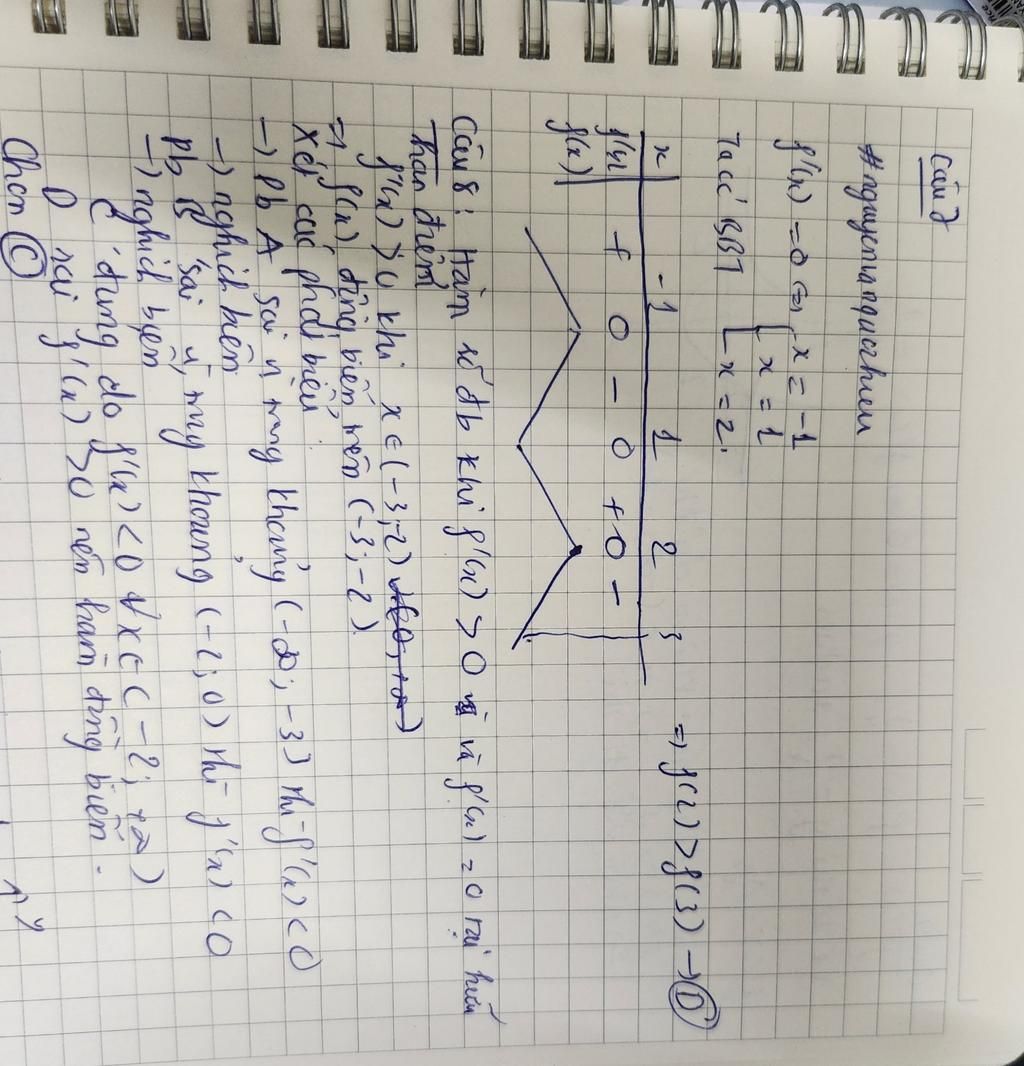 Câu 7
# nguyetnaquiachieu
f'(x) = 0 (=) [ x = -1
x = 1
x = 2.
Ta có BBT
x | -1 1 2 3
f'(x) | + 0 - 0 + 0 -
f(x) |
=) f(2) > f(3) -> D
Câu 8: Hàm số đb khi f'(x) > 0 và f'(x) = 0 tại hữu
hạn điểm
f'(x) > 0 khi x ∈ (-3;-2)
=) f(x) đồng biến trên (-3;-2)
Xét các phát biểu
-) pb A sai vì trong khoảng (-∞; -3) thì f'(x) < 0
-) nghịch biến
pb B sai vì trong khoảng (-2; 0) thì f'(x) < 0
-) nghịch biến
C đúng do f'(x) < 0 ∀x ∈ (-2; +∞)
D sai f'(x) > 0 nên hàm đồng biến.
Chọn C